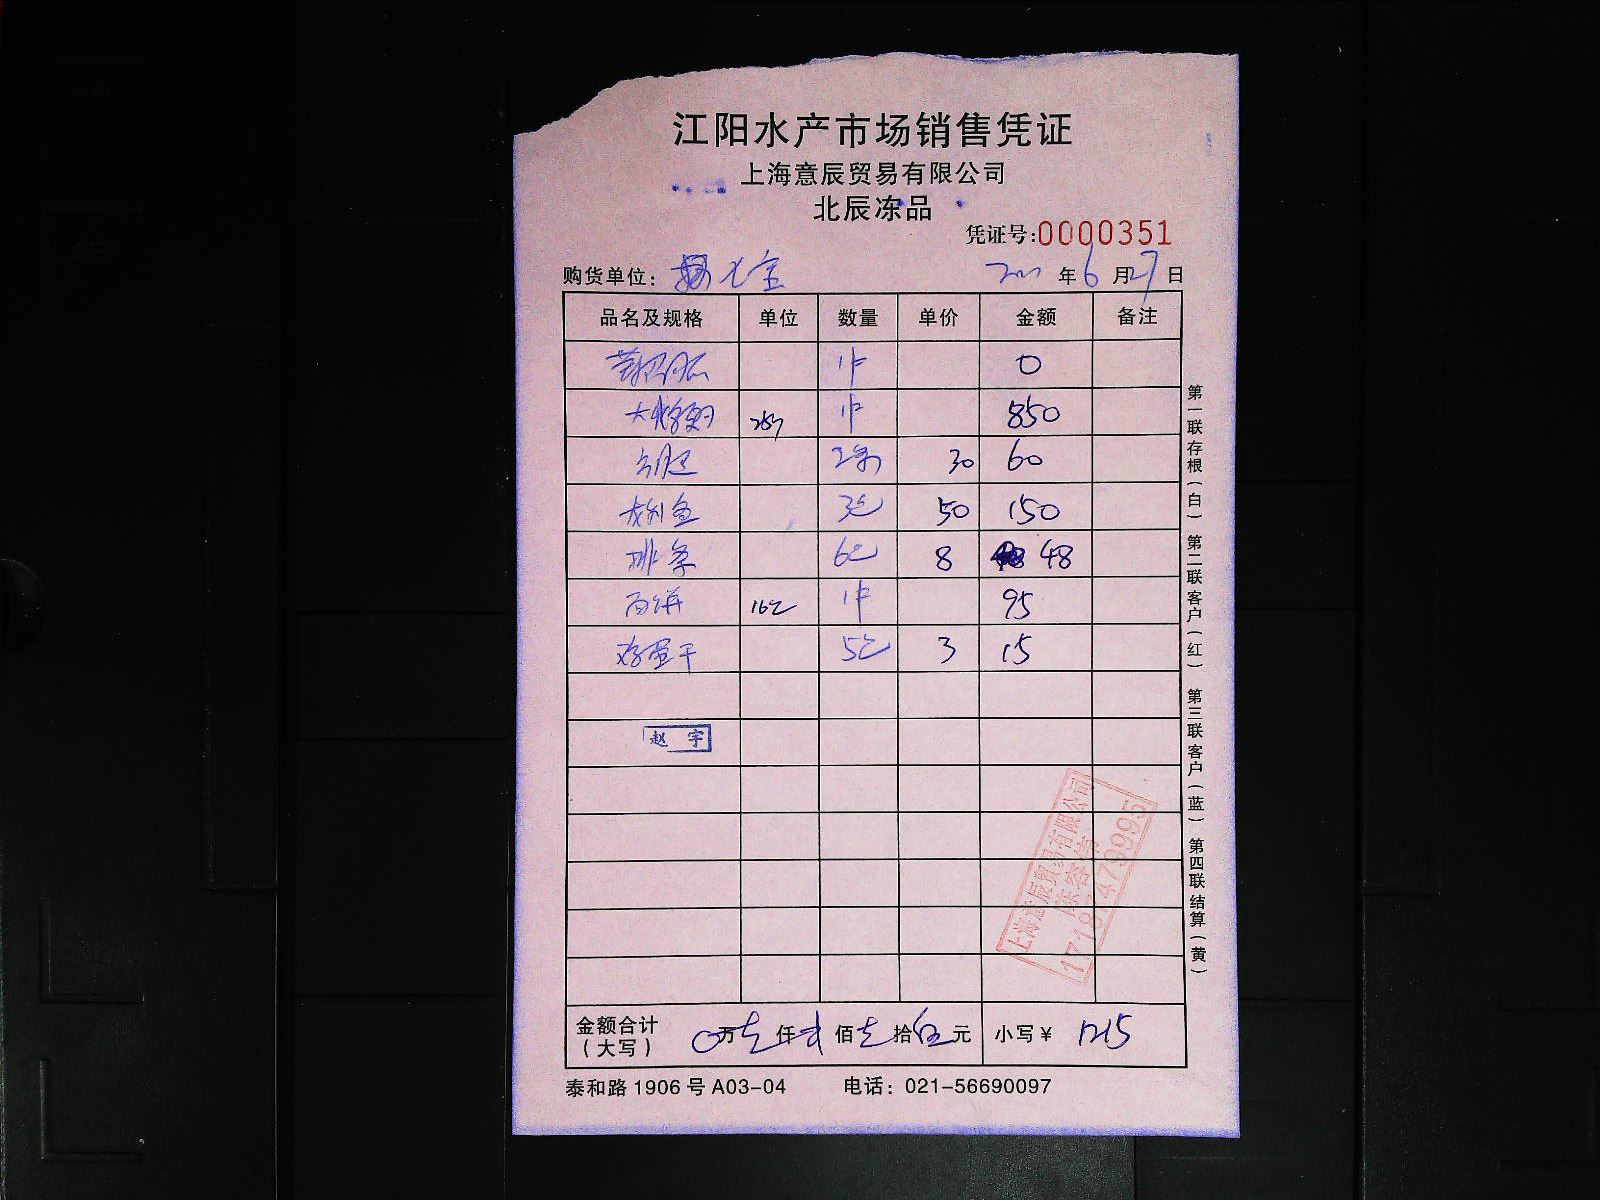 江阳水产市场销售凭证
上海意辰贸易有限公司
北辰冻品
凭证号:0000351
购货单位: 年6月27日
品名及规格 单位 数量 单价 金额 备注
1件 0
1件 850
2条 30 60
龙利鱼 3包 50 150
排条 6包 8 48
16包 1件 95
鸡蛋干 5包 3 15
赵宇
上海意辰贸易有限公司
17187479995
金额合计（大写） 0万壹仟贰佰壹拾伍元 小写¥ 1215
泰和路1906号A03-04 电话：021-56690097
第一联存根(白) 第二联客户(红) 第三联客户(蓝) 第四联结算(黄)